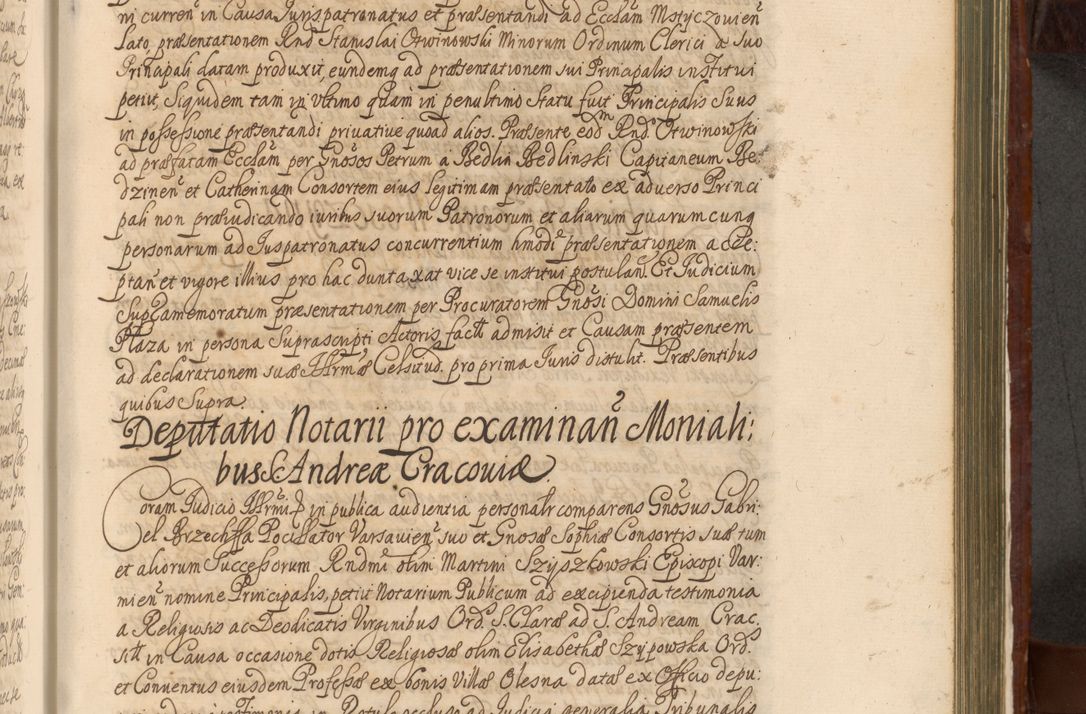 ni curren̄ in Causa Juris patronatus et præsentandi ad Ecclam Mstyczovien̄
lato, præsentationem Rnd Stanislai Otwinowski Minorum Ordinum Clerici a suo
Principali datam produxit, eundemq ad præsentationem sui Principalis institui
petiit, Siquidem tam in ultimo quam in penultimo Statu fuit Principalis Suus
in possessione præsentandi privative quoad alios. Præsente eodm Rndo Otwinowski
ad præfatam Ecclam per Gnosos Petrum a Bedlin Bedlinski Capitaneum Be:
dzinen̄ et Catherinam Consortem eius legitimam præsentato ex adverso Princi
pali non præiudicando iuribus suorum Patronorum et aliarum quarumcunq
personarum ad Juspatronatus concurrentium hmodi præsentationem acce:
ptan̄ et vigore illius pro hac duntaxat vice se institui postulan̄. Et Judicium
Supramemoratum præsentationem per Procuratorem Gnosi Domini Samuelis
Plaza in persona Suprascripti Actoris factt admisit et Causam præsentem
ad declarationem suæ Illrmæ Celsitud. pro prima Juris distulit. Præsentibus
quibus Supra.
Deputatio Notarii pro examinan̄ Moniali:
bus S. Andreæ Cracoviæ.
Coram Judicio Illrmi P in publica audientia personalr comparens Gnosus Gabri:
el Brzechffa Pocillator Varsavien̄ suo et Gnosæ Sophiæ Consortis suæ tum
et aliorum Successorum Rndmi olim Martini Szyszkowski Episcopi Var:
mien̄ nomine Principalis, petiit Notarium Publicum ad excipienda testimonia
a Religiosis ac Deodicatis Virginibus Ords S. Claræ ad S. Andream Crac.
sitt in Causa occasione dotis Religiosæ olim Elisabethæ Szypowska Ords
et Conventus eiusdem Professæ ex bonis Villæ Olesna datæ ex Officio depu: